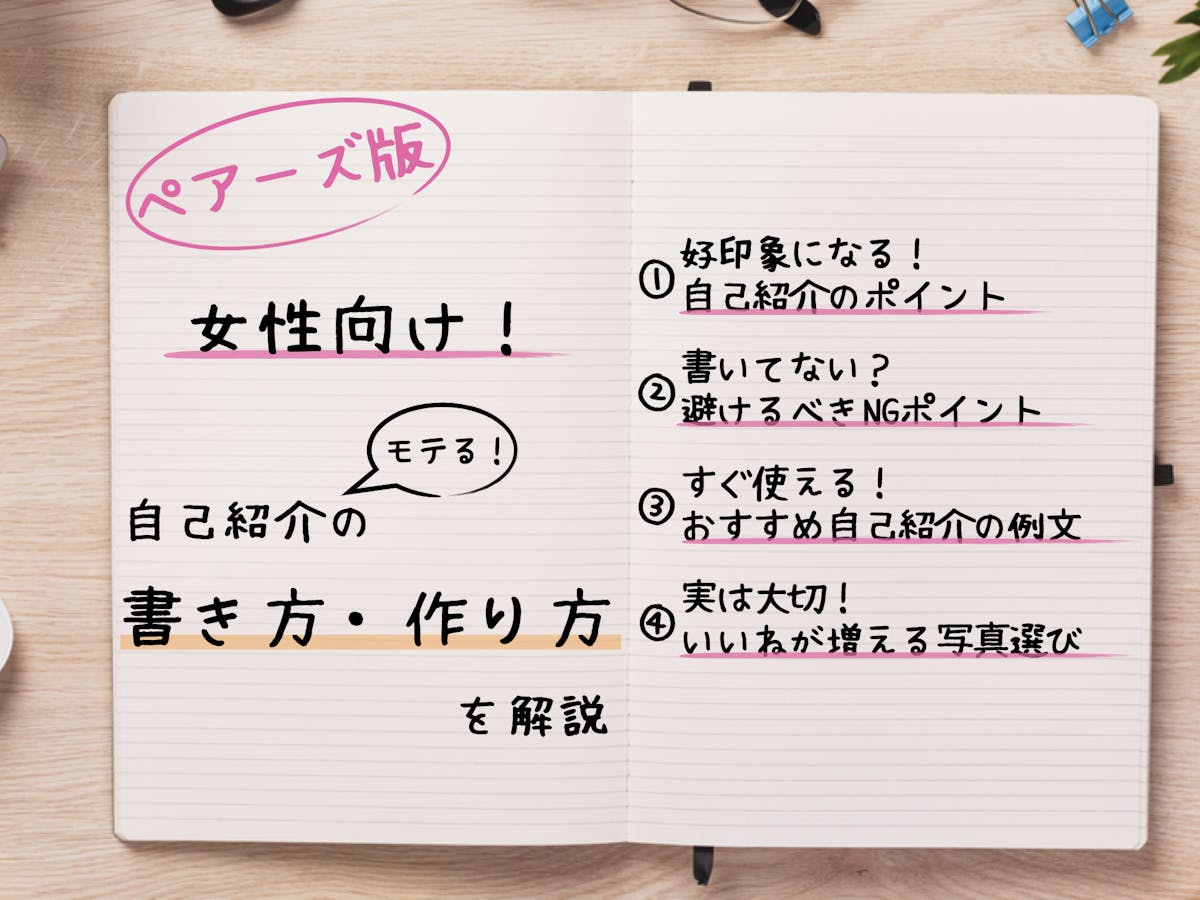 ペアーズ版
女性向け！
モテる！
自己紹介の
書き方・作り方
を解説
① 好印象になる！
自己紹介のポイント
② 書いてない？
避けるべきNGポイント
③ すぐ使える！
おすすめ自己紹介の例文
④ 実は大切！
いいねが増える写真選び